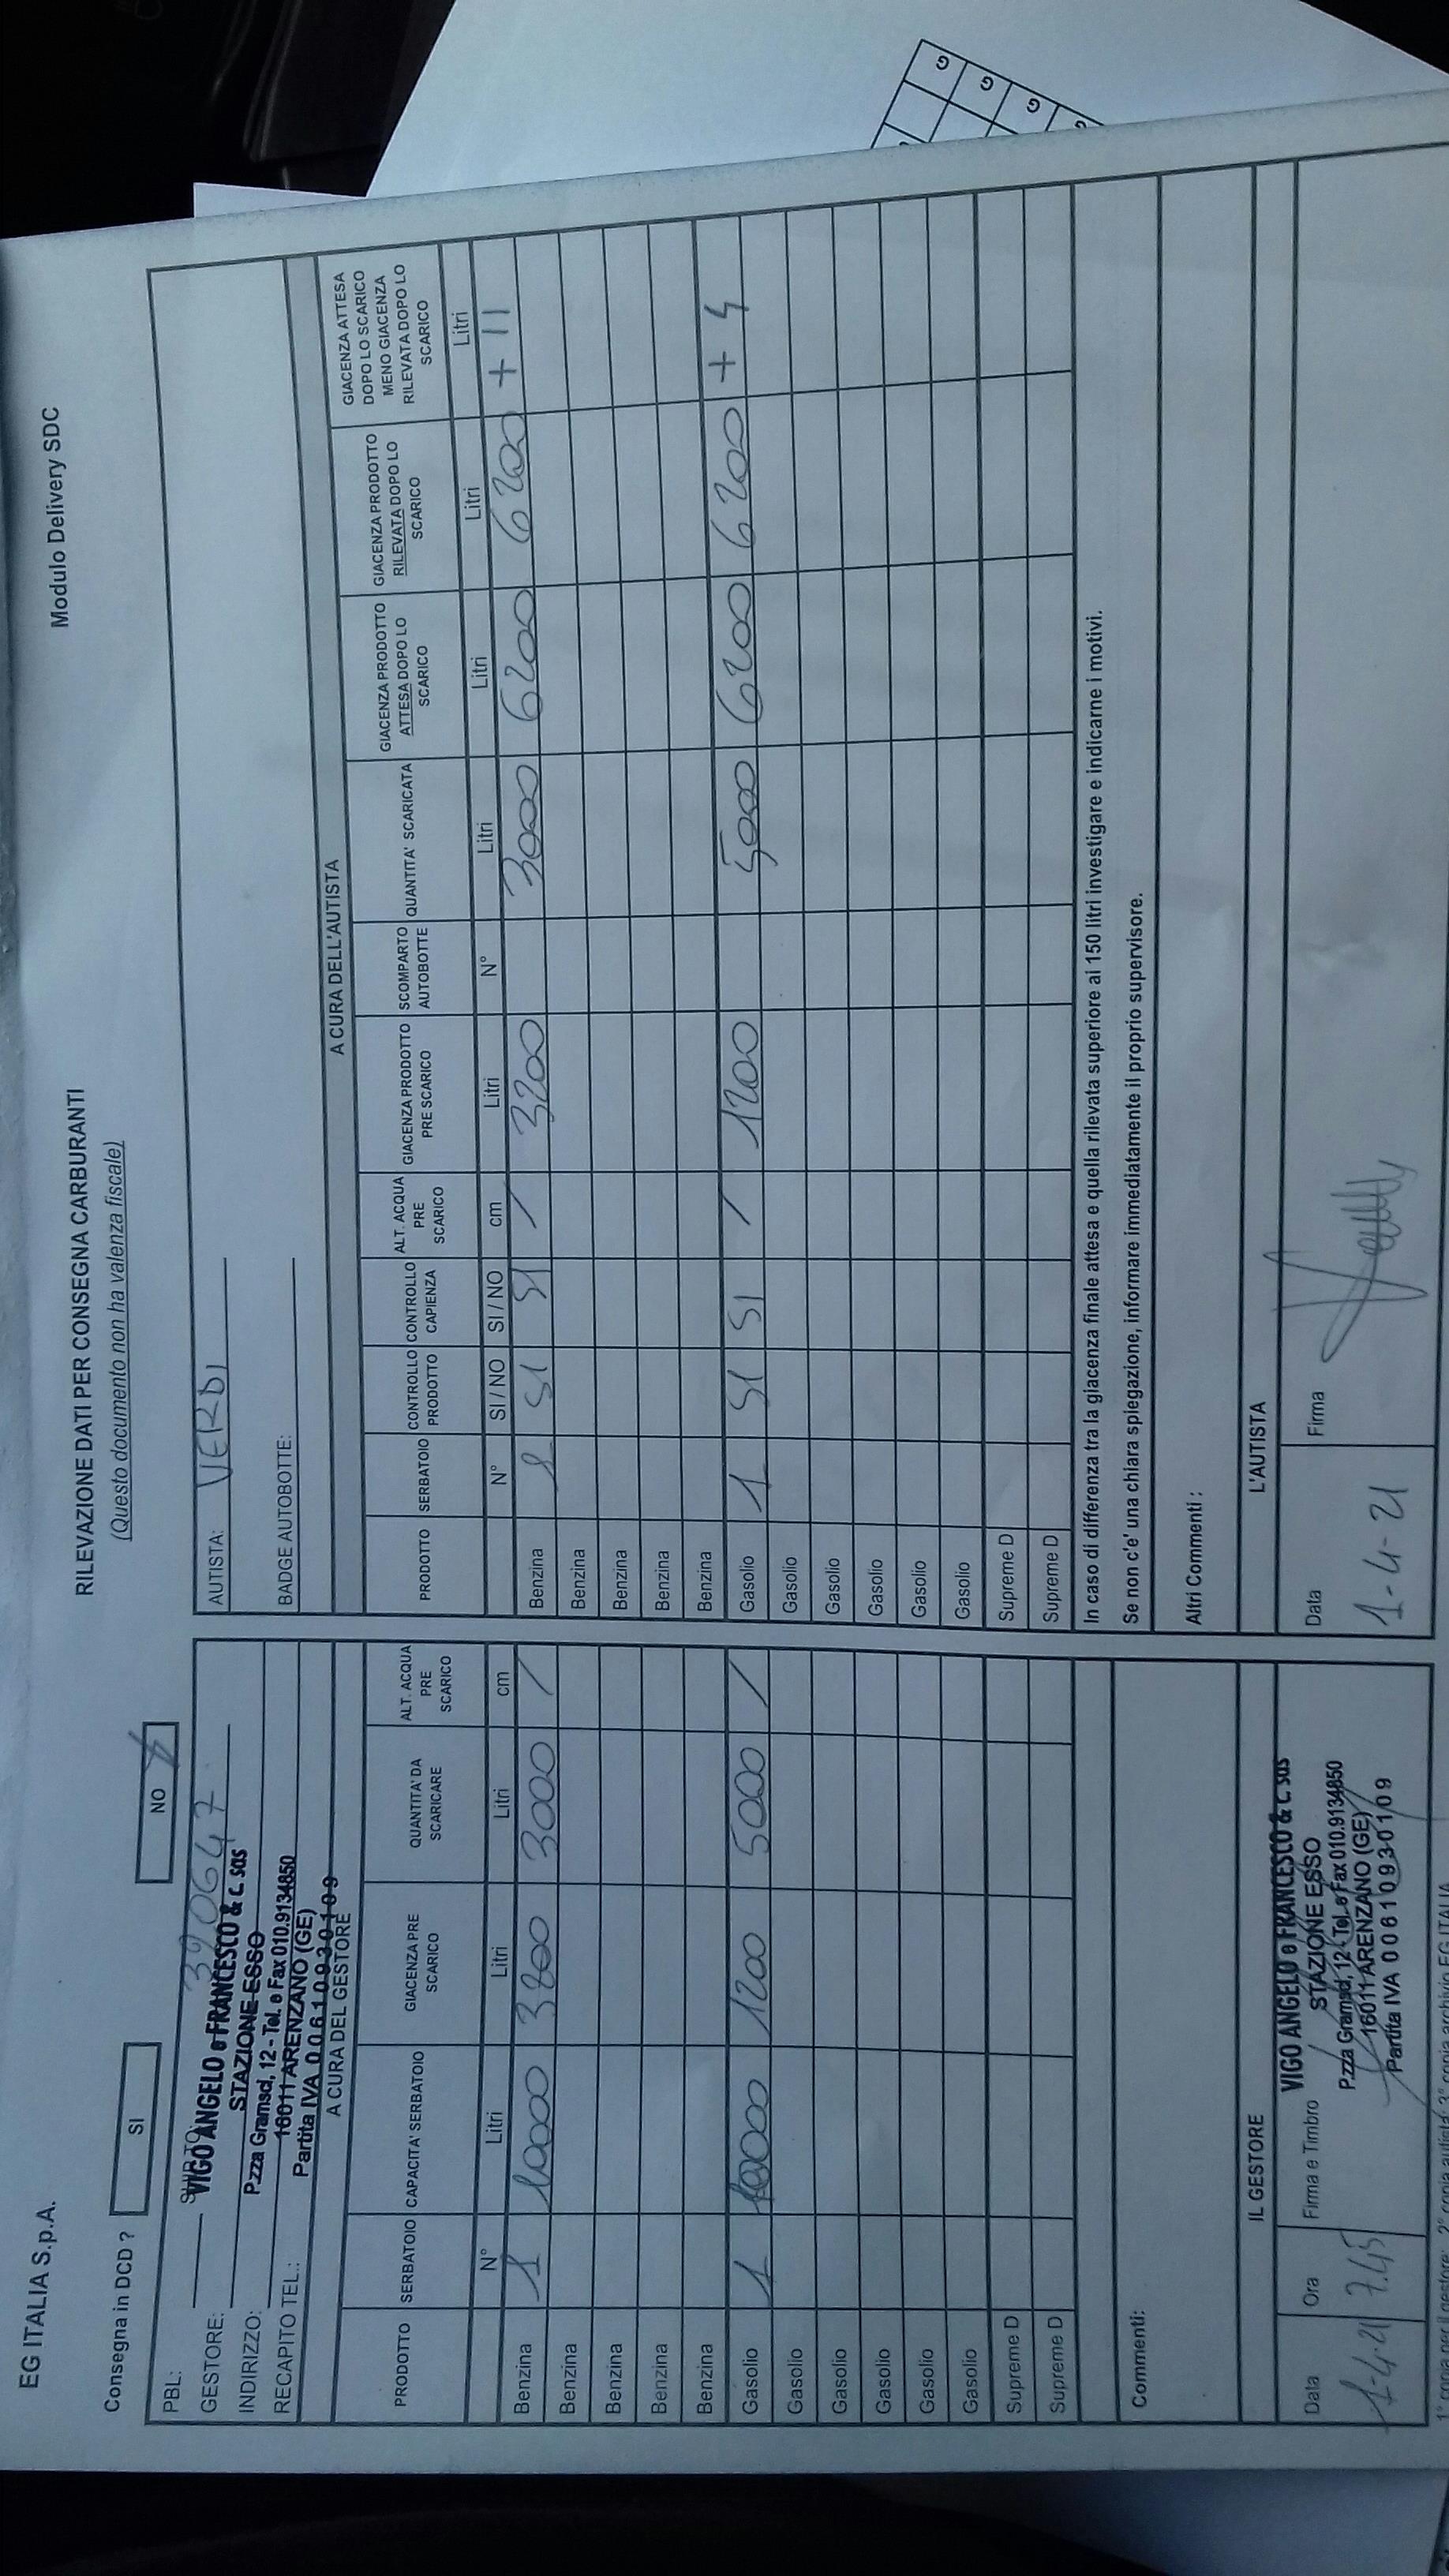 EG ITALIA S.p.A.
Modulo Delivery SDC
RILEVAZIONE DATI PER CONSEGNA CARBURANTI
(Questo documento non ha valenza fiscale)
Consegna in DCD ? SI NO
PBL: 390647
GESTORE: VIGO ANGELO e FRANCESCO & C. sas
STAZIONE ESSO
INDIRIZZO: P.zza Gramsci, 12 - Tel. e Fax 010.9134850
RECAPITO TEL.: 16011 ARENZANO (GE)
Partita IVA 00610930109
A CURA DEL GESTORE
PRODOTTO SERBATOIO CAPACITA' SERBATOIO GIACENZA PRE SCARICO QUANTITA' DA SCARICARE ALT. ACQUA PRE SCARICO
N° Litri Litri Litri cm
Benzina 1 10000 3200 3000 /
Benzina
Benzina
Benzina
Benzina
Gasolio 1 10000 1200 5000 /
Gasolio
Gasolio
Gasolio
Gasolio
Gasolio
Supreme D
Supreme D
Commenti:
IL GESTORE
Data Ora Firma e Timbro
1-4-21 7.45
VIGO ANGELO e FRANCESCO & C. sas
STAZIONE ESSO
P.zza Gramsci, 12 - Tel. e Fax 010.9134850
16011 ARENZANO (GE)
Partita IVA 00610930109
AUTISTA: VERDI
BADGE AUTOBOTTE:
A CURA DELL'AUTISTA
PRODOTTO SERBATOIO CONTROLLO PRODOTTO CONTROLLO CAPIENZA ALT. ACQUA PRE SCARICO GIACENZA PRODOTTO PRE SCARICO SCOMPARTO AUTOBOTTE QUANTITA' SCARICATA GIACENZA PRODOTTO ATTESA DOPO LO SCARICO GIACENZA PRODOTTO RILEVATA DOPO LO SCARICO GIACENZA ATTESA DOPO LO SCARICO MENO GIACENZA RILEVATA DOPO LO SCARICO
N° SI / NO SI / NO cm Litri N° Litri Litri Litri Litri
Benzina 1 SI SI / 3200 3000 6200 6200 + 11
Benzina
Benzina
Benzina
Benzina
Gasolio 1 SI SI / 1200 5000 6200 6200 + 4
Gasolio
Gasolio
Gasolio
Gasolio
Gasolio
Supreme D
Supreme D
In caso di differenza tra la giacenza finale attesa e quella rilevata superiore ai 150 litri investigare e indicarne i motivi.
Se non c'e' una chiara spiegazione, informare immediatamente il proprio supervisore.
Altri Commenti :
L'AUTISTA
Data Firma
1-4-21
G
G
G